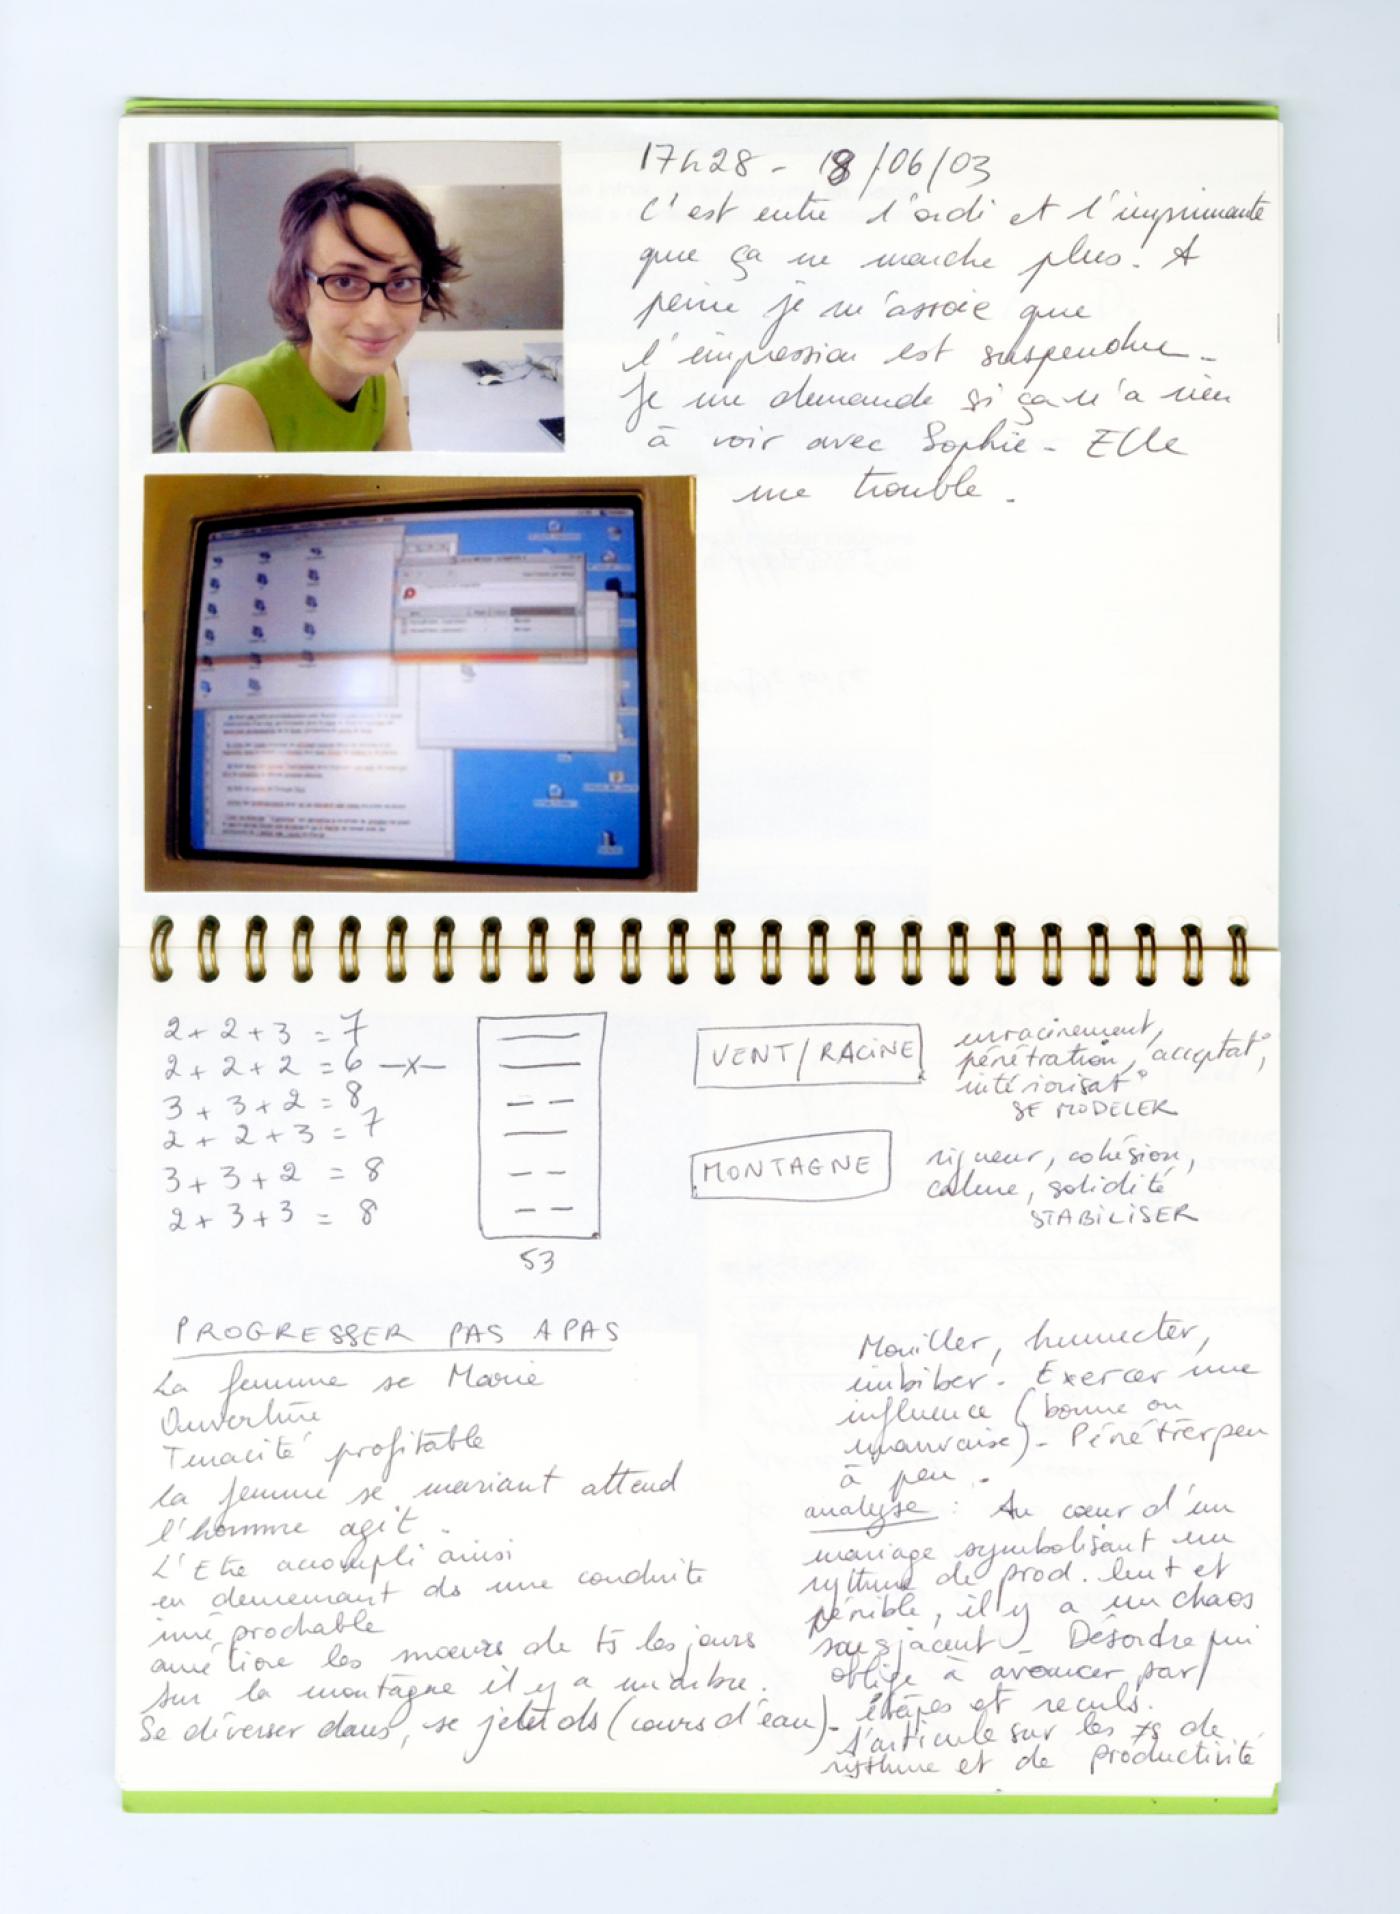 17h28 - 18/06/03
C'est entre l'ordi et l'imprimante
que ça ne marche plus. A
peine je m'assoie que
l'impression est suspendue -
Je me demande si ça n'a rien
à voir avec Sophie - Elle
me trouble -
2 + 2 + 3 = 7
2 + 2 + 2 = 6 —x—
3 + 3 + 2 = 8
2 + 2 + 3 = 7
3 + 3 + 2 = 8
2 + 3 + 3 = 8
53
VENT/RACINE
enracinement,
pénétration, acceptat°,
intériorisat°
SE MODELER
MONTAGNE
rigueur, cohésion,
calme, solidité
STABILISER
PROGRESSER PAS A PAS
La femme se Marie
Ouverture
Tenacité profitable
la femme se mariant attend
l'homme agit -
L'Etre accompli ainsi
en demeurant ds une conduite
irréprochable
améliore les mœurs de ts les jours
sur la montagne il y a un arbre.
Se déverser dans, se jeter ds (cours d'eau) -
Mouiller, humecter,
imbiber - Exercer une
influence (bonne ou
mauvaise) - Pénétrer peu
à peu -
analyse : Au cœur d'un
mariage symbolisant un
rythme de prod. lent et
pénible, il y a un chaos
sousjacent - Désordre qui
oblige à avancer par
étapes et reculs.
S'articule sur les de
rythme et de productivité